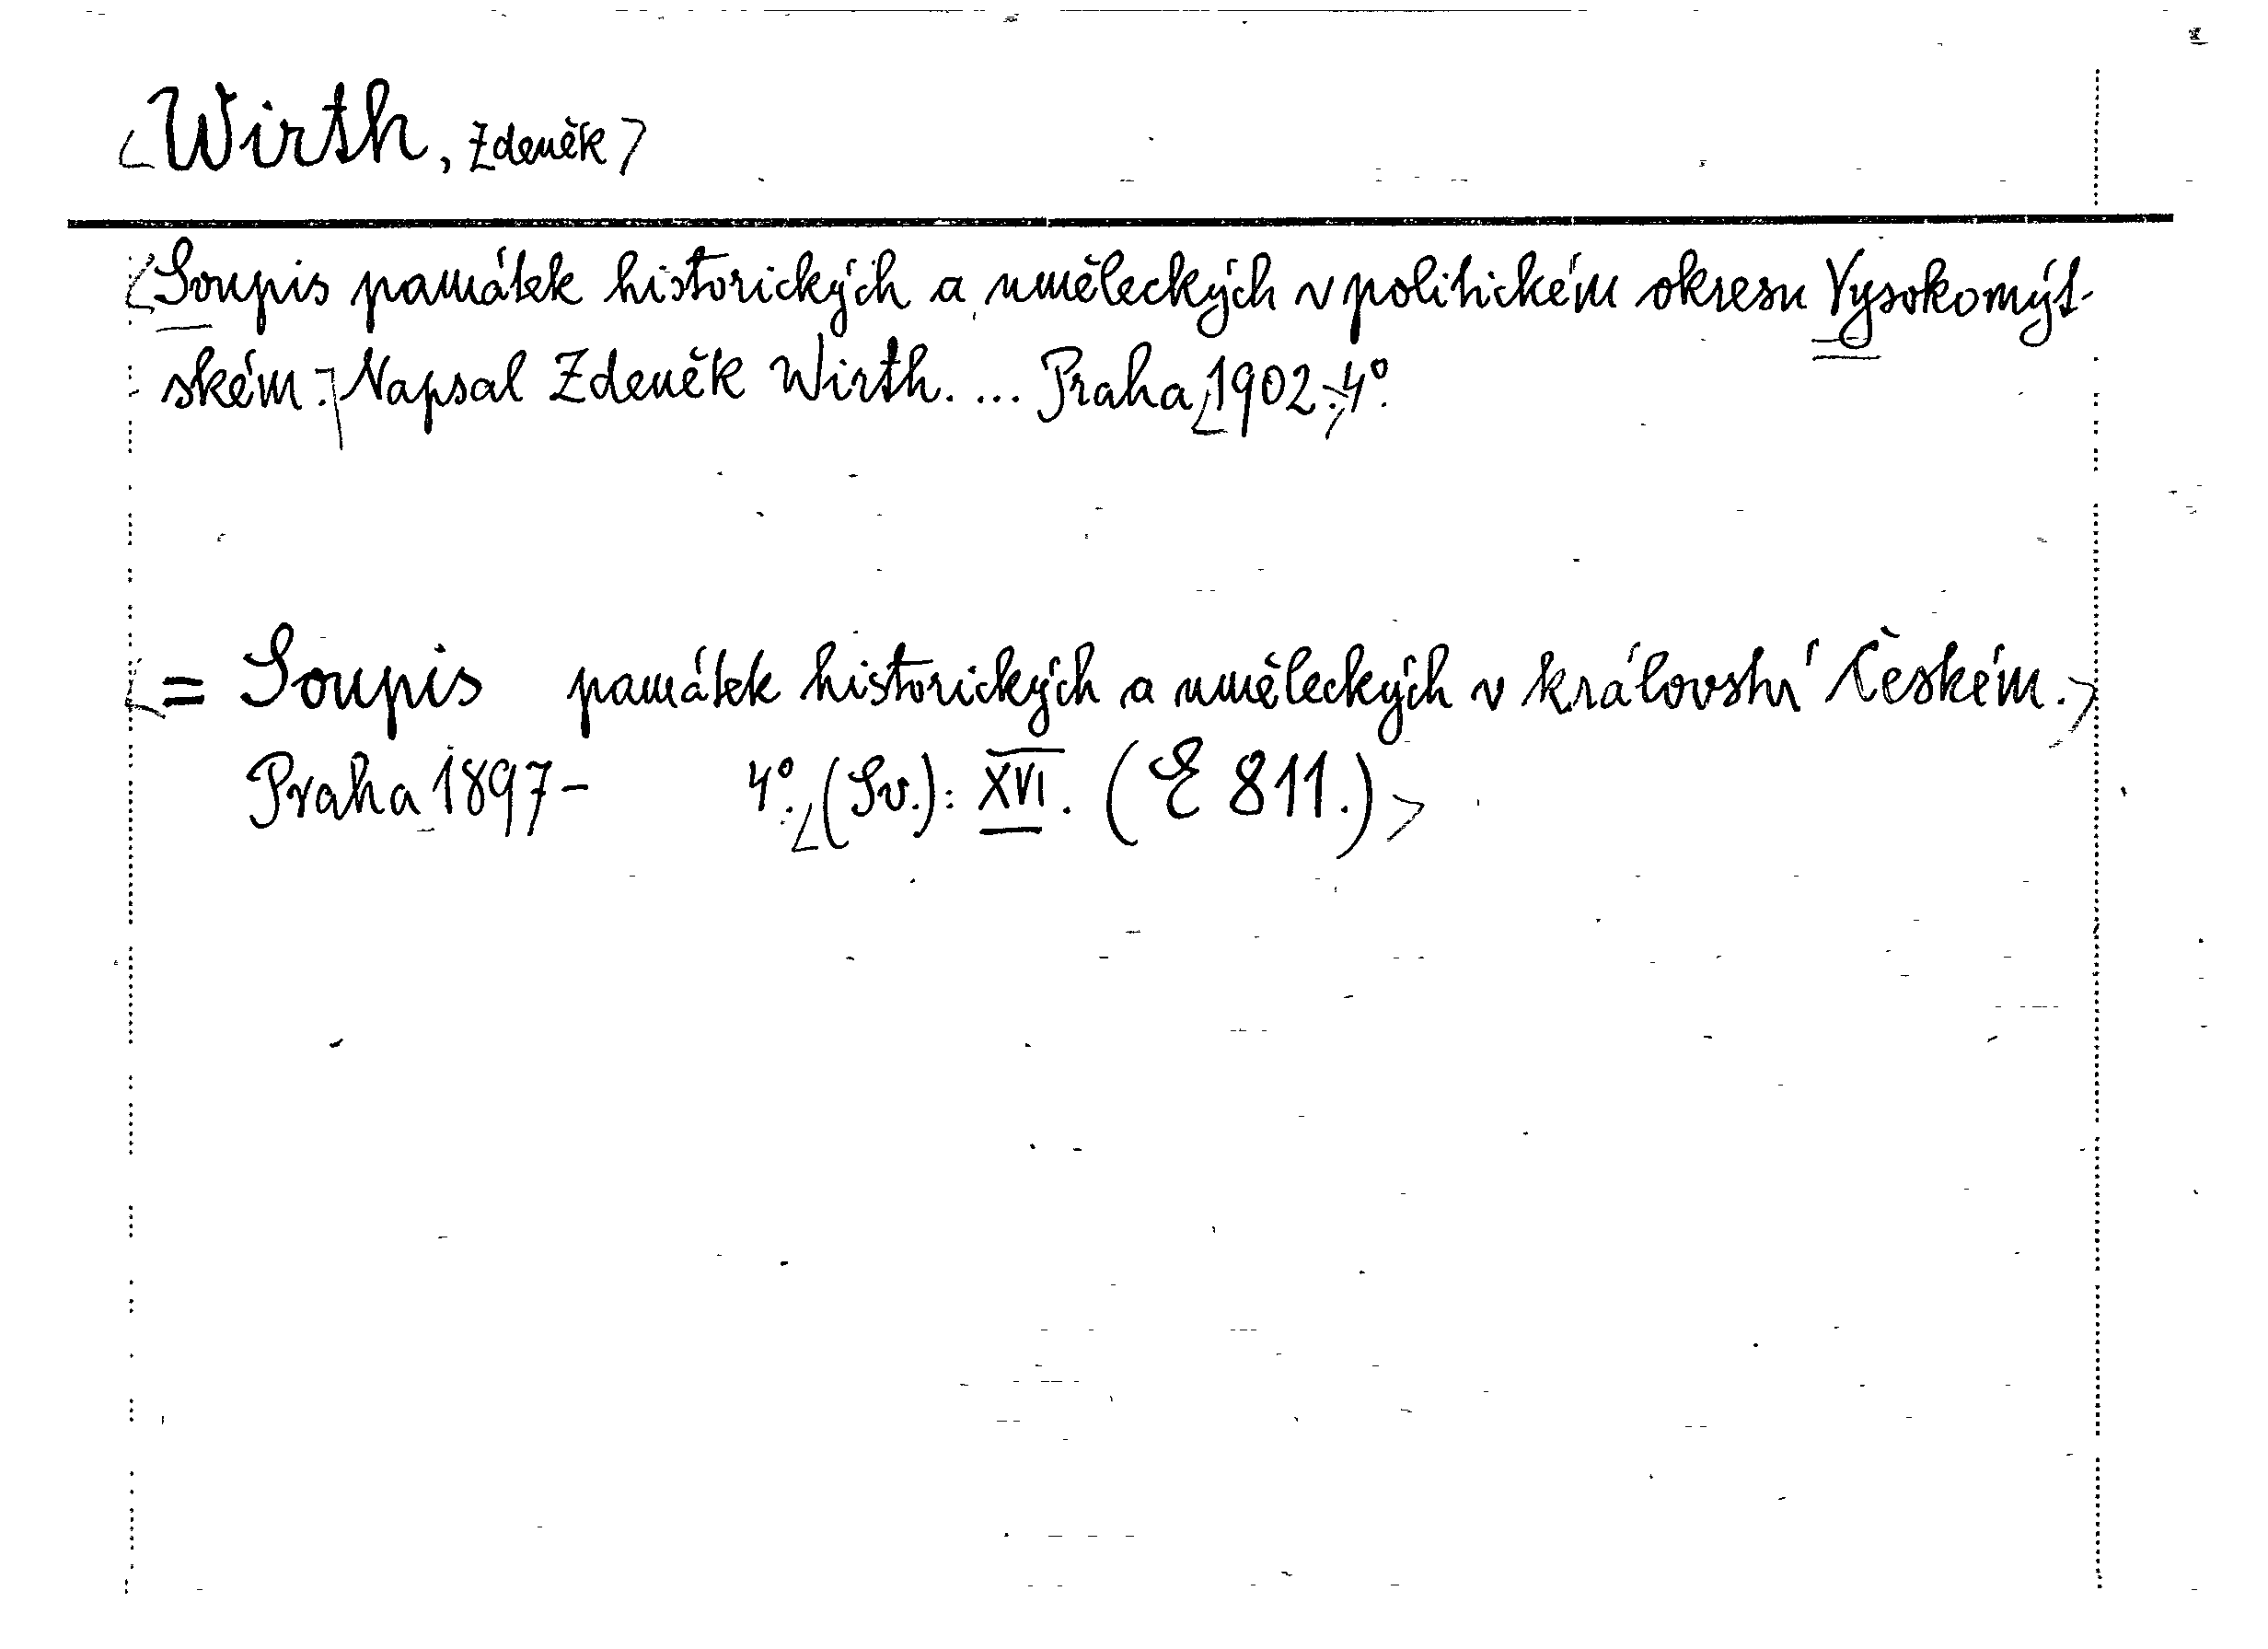 <Wirth, Zdeněk>
<Soupis památek historických a uměleckých v politickém okresu Vysokomýt-
ském.> Napsal Zdeněk Wirth. ... Praha <1902.> 4°.
<= Soupis památek historických a uměleckých v království Českém.>
Praha 1897- 4°. <(Sv.): XVI. (E 811.)>